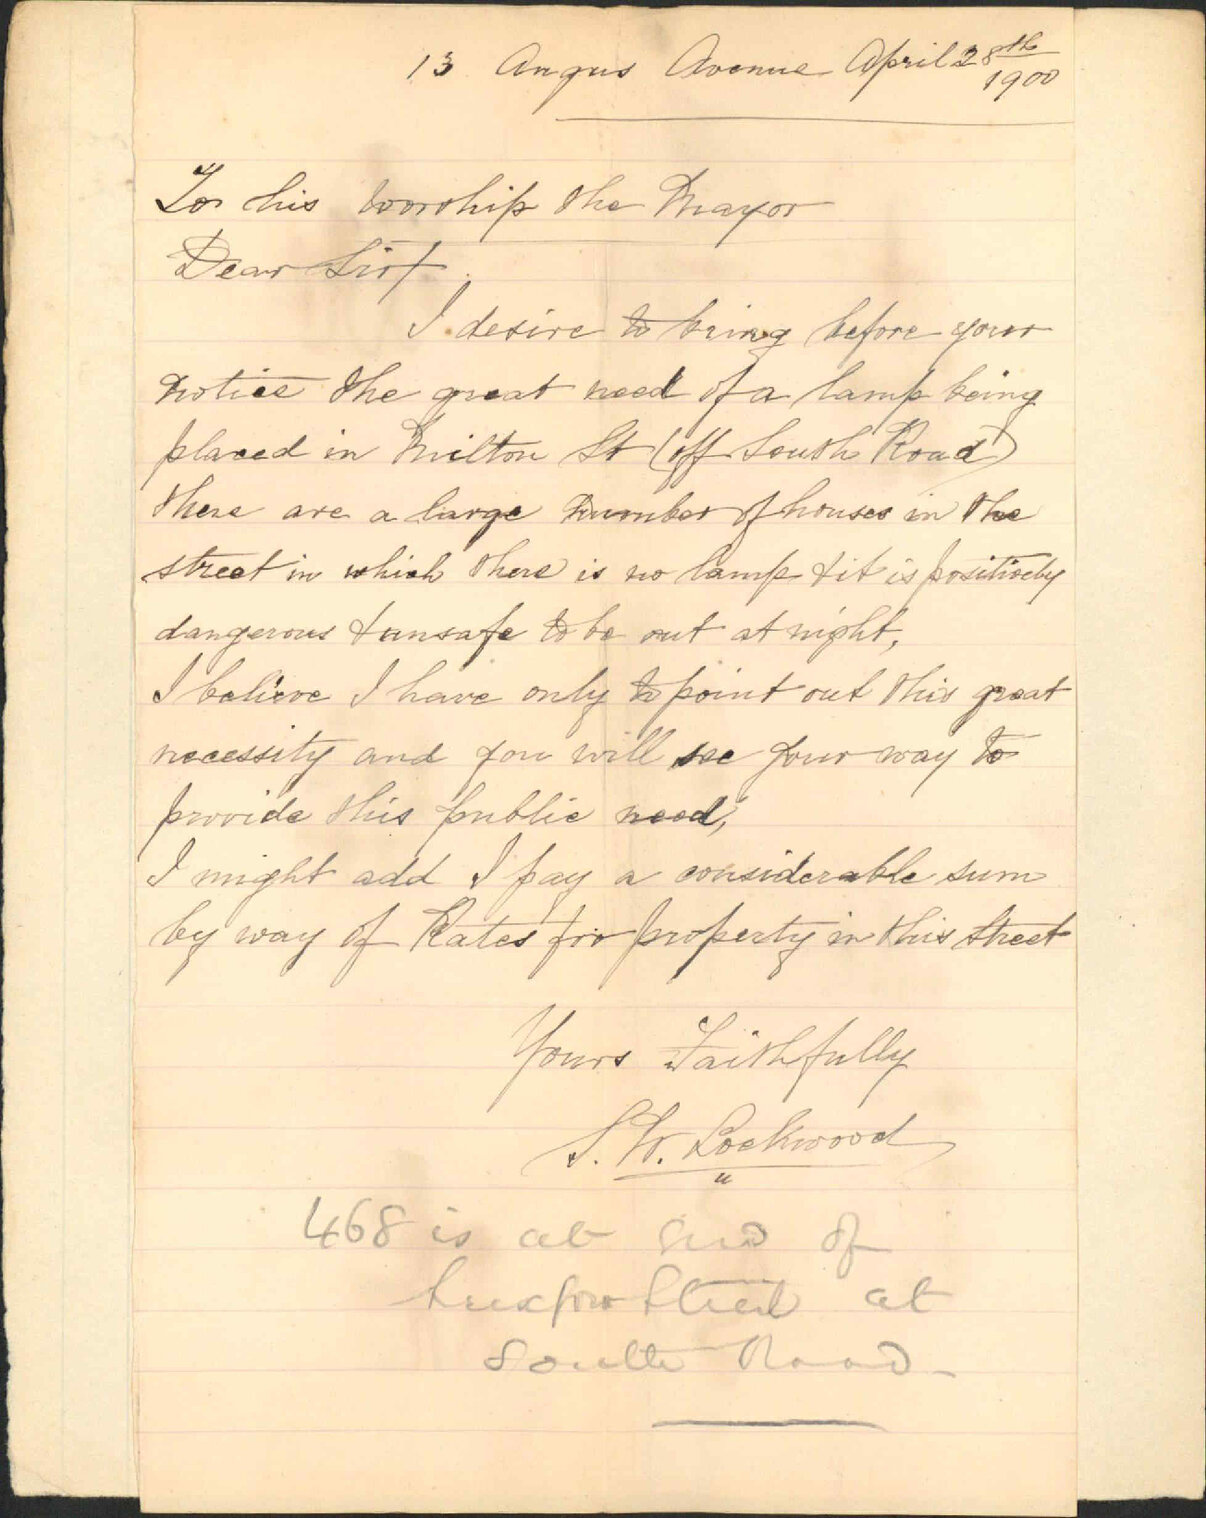 13 Angus Avenue April 28th
1900
To his worship the Mayor
Dear Sir/
I desire to bring before your
notice the great need of a lamp being
placed in Milton St (off South Road)
there are a large number of houses in the
street in which there is no lamp & it is positively
dangerous & unsafe to be out at night,
I believe I have only to point out this great
necessity and you will see your way to
provide this public need,
I might add I pay a considerable sum
by way of Rates for property in this street
Yours Faithfully
S. W. Lockwood
468 is at End of
Street at
South Road